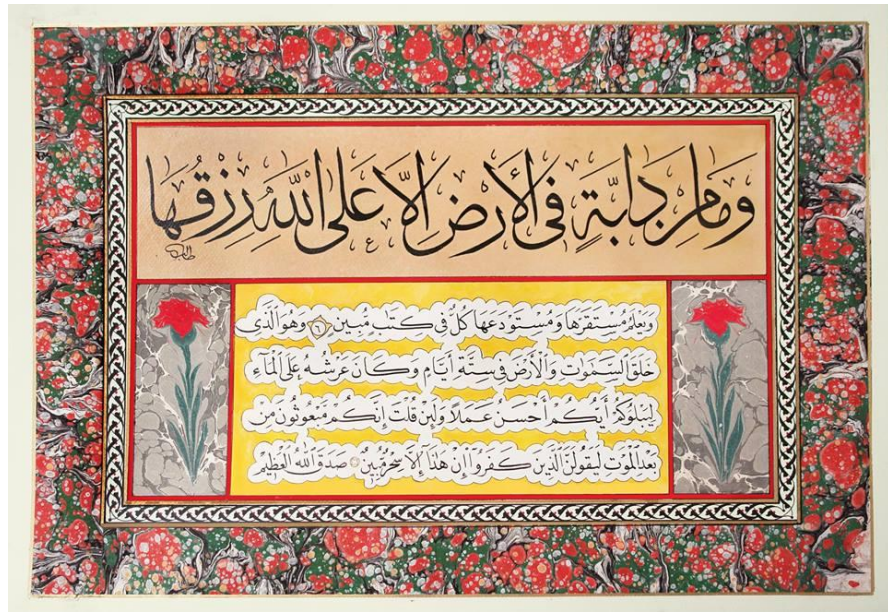 وَمَا مِن دَابَّةٍ فِى الْأَرْضِ اِلَّا عَلَى اللّٰهِ رِزْقُهَا
وَيَعْلَمُ مُسْتَقَرَّهَا وَمُسْتَوْدَعَهَا كُلٌّ فِى كِتَابٍ مُبِينٍ ٦ وَهُوَ الَّذِى
خَلَقَ السَّمٰوَاتِ وَالْأَرْضَ فِى سِتَّةِ أَيَّامٍ وَكَانَ عَرْشُهُ عَلَى الْمَاءِ
لِيَبْلُوَكُمْ أَيُّكُمْ أَحْسَنُ عَمَلًا وَلَئِنْ قُلْتَ إِنَّكُمْ مَبْعُوثُونَ مِنْ
بَعْدِ الْمَوْتِ لَيَقُولَنَّ الَّذِينَ كَفَرُوا إِنْ هٰذَا إِلَّا سِحْرٌ مُبِينٌ صَدَقَ اللّٰهُ الْعَظِيمُ